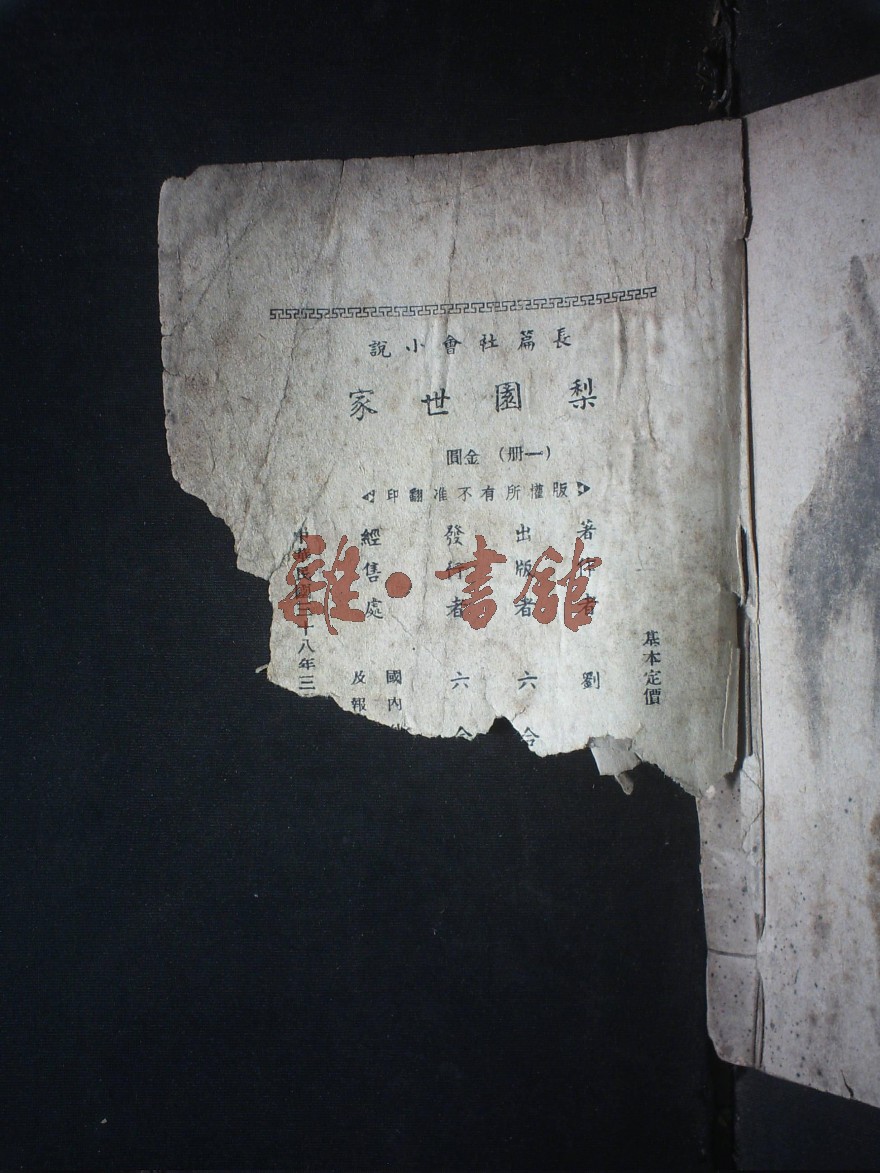 長篇社會小說
梨園世家
(一册) 金圓
版權所有不准翻印
基本定價
著作者 劉
出版者 六合
發行者 六合
經售處 國內
及報
中華民國三十八年三
雜·書館